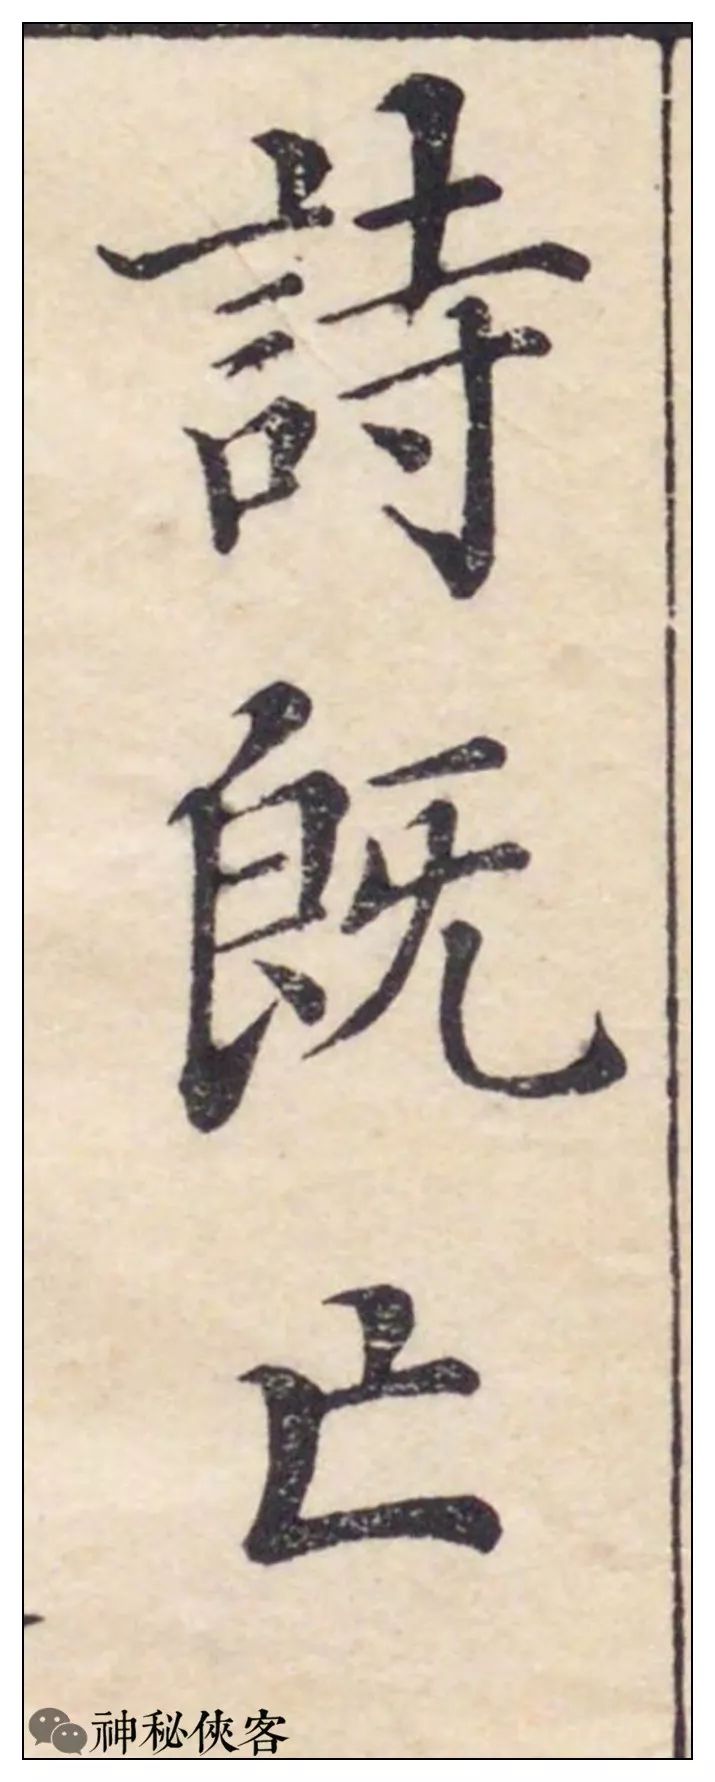 詩既亡
神秘俠客